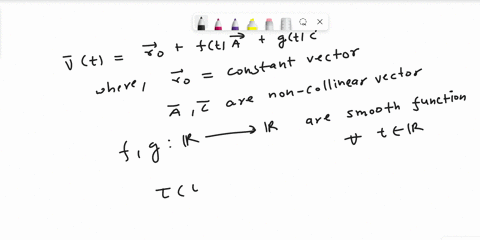 v̄(t) = r⃗₀ + f(t) A⃗ + g(t) c⃗
where, r⃗₀ = constant vector
Ā, c̄ are non-collinear vector
f, g : ℝ ⟶ ℝ are smooth function
∀ t ∈ ℝ
τ (